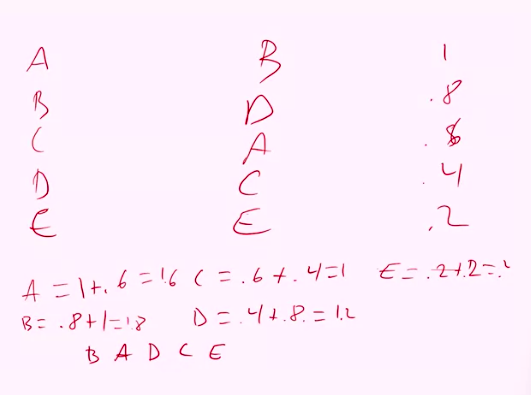 A B 1
B D .8
C A .6
D C .4
E E .2
A = 1+.6 = 1.6 C = .6+.4=1 E = .2+.2=.4
B = .8+1=1.8 D = .4+.8.=1.2
B A D C E